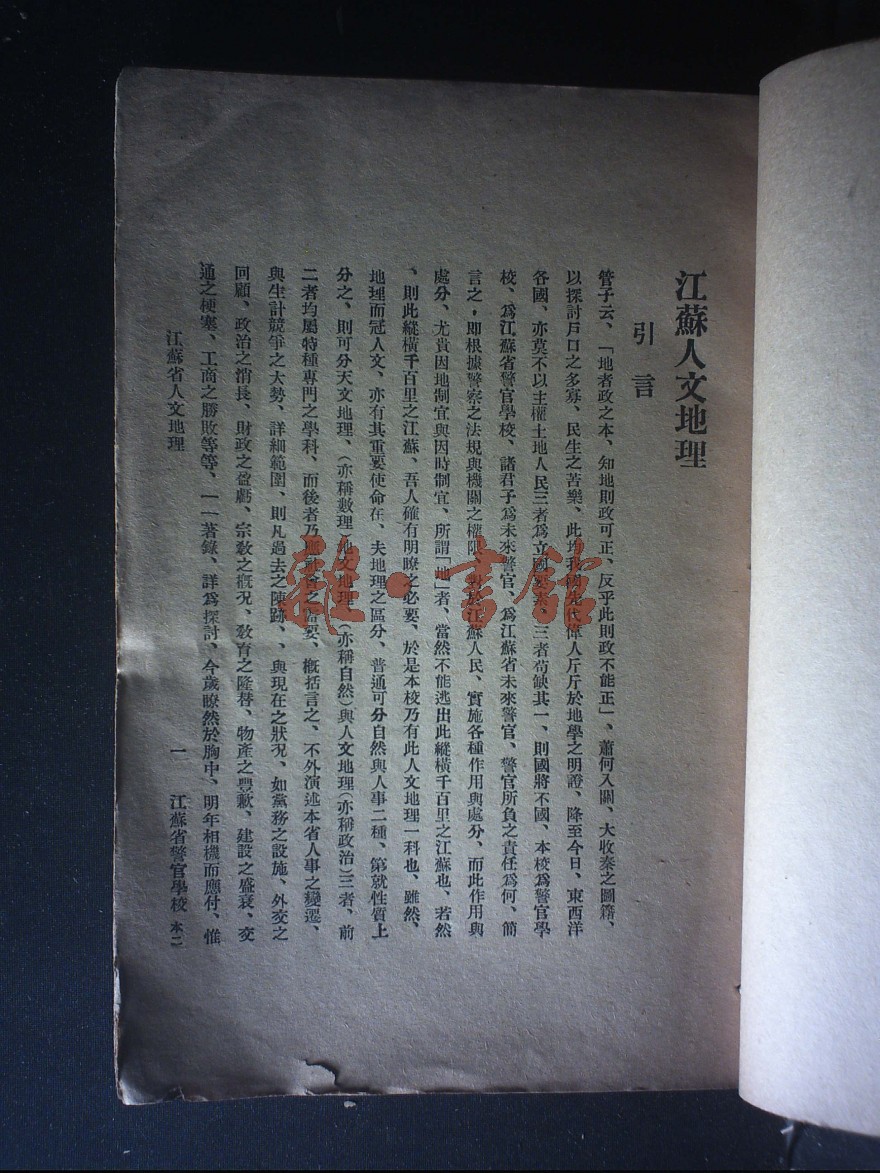 江蘇人文地理
引言
管子云、「地者政之本、知地則政可正、反乎此則政不能正」、蕭何入關、大收秦之圖籍、
以探討戶口之多寡、民生之苦樂、此均我國先代偉人斤斤於地學之明證、降至今日、東西洋
各國、亦莫不以主權土地人民三者爲立國要素、三者苟缺其一、則國將不國、本校爲警官學
校、爲江蘇省警官學校、諸君子爲未來警官、爲江蘇省未來警官、警官所負之責任爲何、簡
言之，卽根據警察之法規與機關之權限、對於江蘇人民、實施各種作用與處分、而此作用與
處分、尤貴因地制宜與因時制宜、所謂「地」者、當然不能逃出此縱橫千百里之江蘇也、若然
、則此縱橫千百里之江蘇、吾人確有明瞭之必要、於是本校乃有此人文地理一科也、雖然、
地理而冠人文、亦有其重要使命在、夫地理之區分、普通可分自然與人事二種、第就性質上
分之、則可分天文地理、（亦稱數理）地文地理、（亦稱自然）與人文地理（亦稱政治）三者、前
二者均屬特種專門之學科、而後者乃應社會之需要、概括言之、不外演述本省人事之變遷、
與生計競爭之大勢、詳細範圍、則凡過去之陳跡、、與現在之狀況、如黨務之設施、外交之
回顧、政治之消長、財政之盈虧、宗敎之概况、敎育之隆替、物產之豐歉、建設之盛衰、交
通之梗塞、工商之勝敗等等、一一著錄、詳爲探討、今歲瞭然於胸中、明年相機而應付、惟
江蘇省人文地理
一
江蘇省警官學校
本二
雜·書館